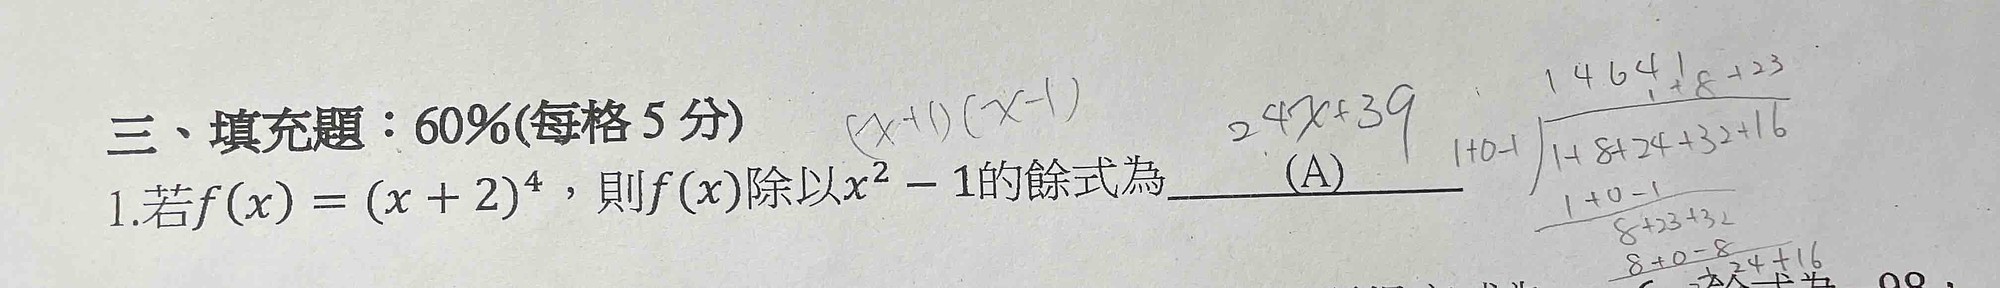 三、填充題：60%(每格5分)
(x+1)(x-1)
24x+39
1.若f(x) = (x + 2)⁴，則f(x)除以x² − 1的餘式為 (A)
1 4 6 4 1
1+8+23
1+0-1 1+8+24+32+16
1+0-1
8+23+32
8+0-8
24+16